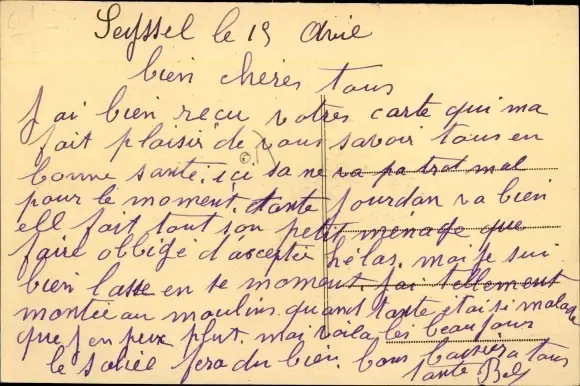 Seyssel le 19 Avril
bien chères tous
j'ai bien reçu votres carte qui ma
fait plaisir de vous savoir tous en
bonne santé. içi sa ne va pa trot mal
pour le moment. tante Jourdan va bien
ell fait tout son petit ménage que
faire obligé d'accepter hélas. moi je sui
bien lasse en se moment. j'ai tellement
montée au moulins quand tante était si malade
que j'en peux plut. mai voila les beau jours
le soleil fera du bien. bons baisers a tous
tante